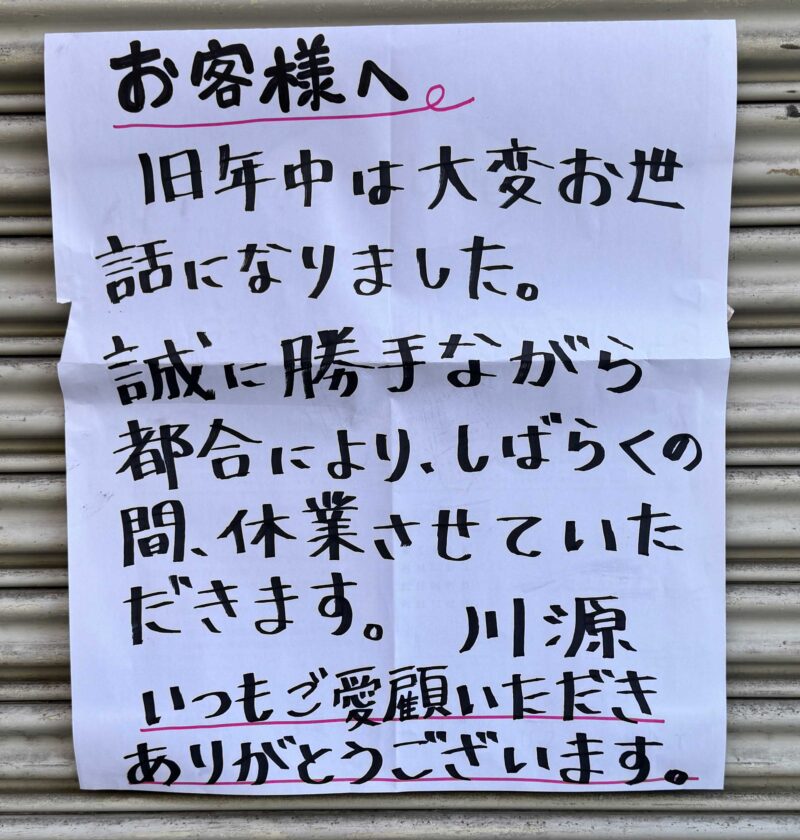 お客様へ
旧年中は大変お世
話になりました。
誠に勝手ながら
都合により、しばらくの
間、休業させていた
だきます。 川源
いつもご愛顧いただき
ありがとうございます。